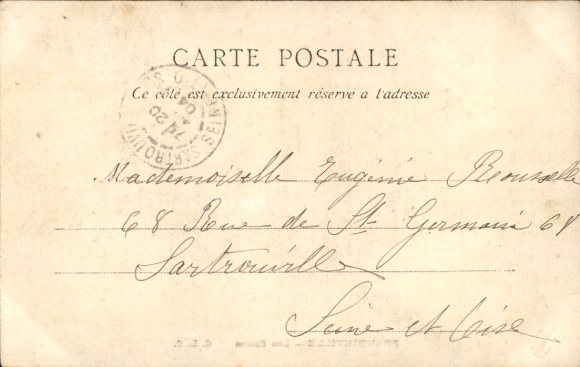 CARTE POSTALE
Ce côté est exclusivement réservé à l'adresse
SARTROUVILLE SEINE
20
04
Mademoiselle Eugénie Rousselle
68 Rue de St Germain 68
Sartrouville
Seine et Oise